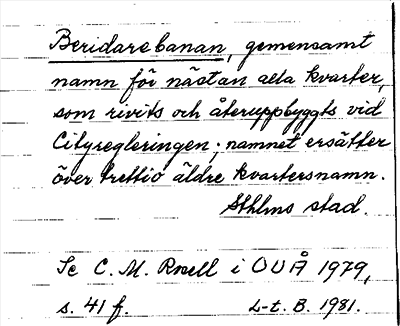 Beridarebanan, gemensamt
namn för nästan alla kvarter,
som rivits och återuppbyggts vid
Cityregleringen; namnet ersätter
över trettio äldre kvartersnamn.
Sthlms stad.
Se C. M. Rosell i OUÅ 1979,
s. 41 f. L-t. B. 1981.